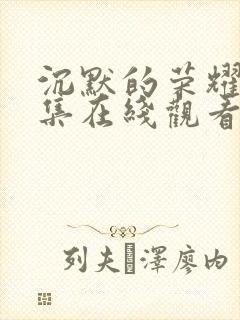 沉默的荣耀
集在綫觀看
列夫澤廖内